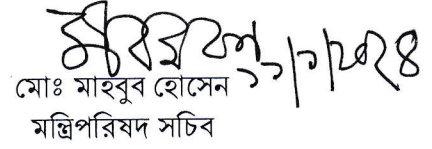 ১১/১/২০২৪
মোঃ মাহবুব হোসেন
মন্ত্রিপরিষদ সচিব